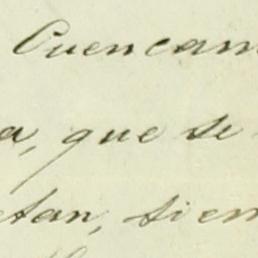 Cuencam
a, que se
etan, siem